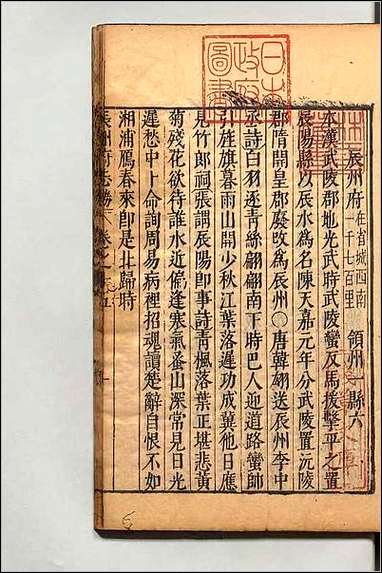 辰州府在省城西南一千七百里 領州一縣六
本漢武陵郡地光武時武陵蠻反馬援擊平之置
辰陽縣以辰水為名陳天嘉元年分武陵置沅陵
郡隋開皇郡廢改為辰州○唐韓翃送辰州李中
丞詩白羽逐青絲翩翩南下時巴人迎道路蠻帥
引旌旗暮雨山開少秋江葉落遲功成冀他日應
見竹郎祠張謂辰陽即事詩青楓落葉正堪悲黃
菊殘花欲待誰水近偏逢寒氣蚤山深常見日光
遲愁中卜命詢周易病裡招魂讀楚辭自恨不如
湘浦鴈春來即是北歸時
辰州府志勝 卷之
日本
政府
圖書